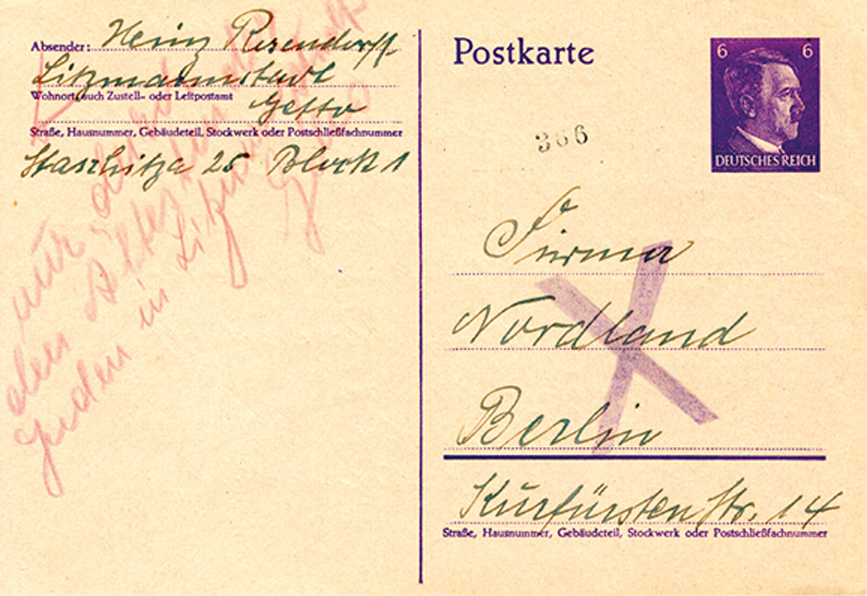 Absender: Heinz Rosendorff
Litzmannstadt
Wohnort, auch Zustell- oder Leitpostamt
Getto
Straße, Hausnummer, Gebäudeteil, Stockwerk oder Postschließfachnummer
25 Block 1
nur durch
den Ältesten der
Juden in Litzmannstadt
Postkarte
6 6
DEUTSCHES REICH
366
Firma
Nordland
Berlin
Kurfürstenstr. 14
Straße, Hausnummer, Gebäudeteil, Stockwerk oder Postschließfachnummer